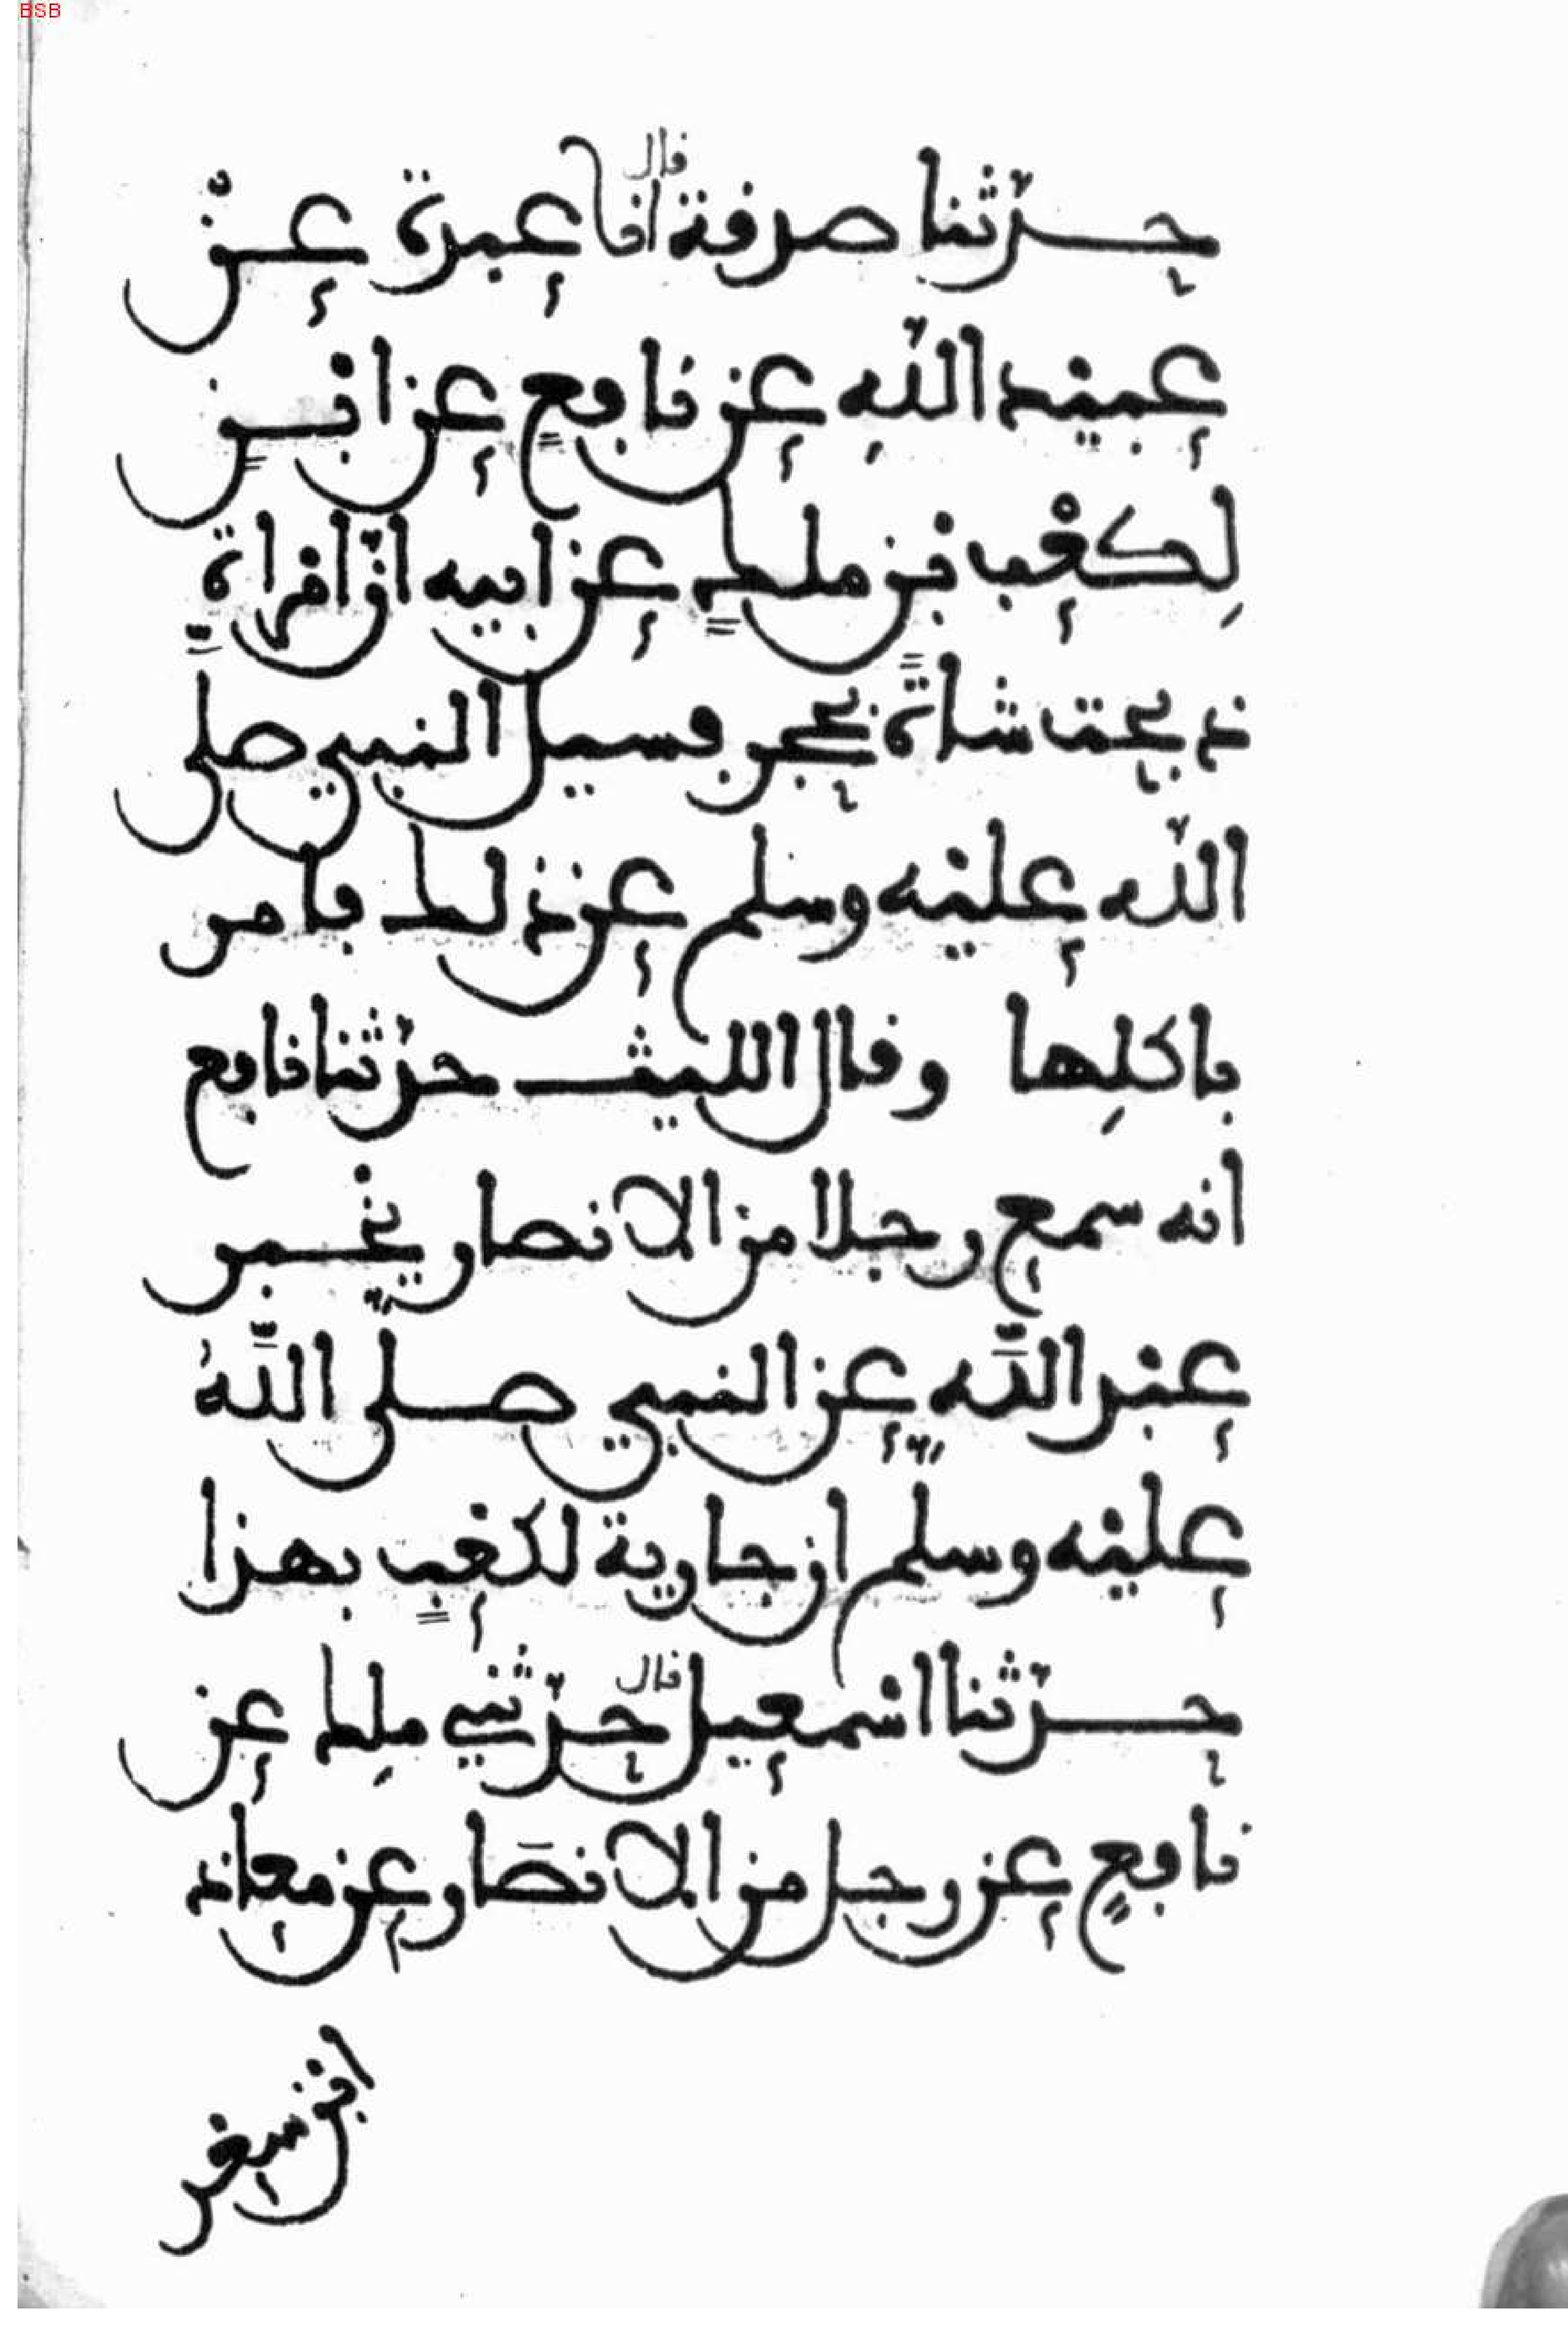 BSB
حدّثنا صدقة قال انا عبدة عنْ
عبيْد اللّهِ عن نافعٍ عن ابْنٍ
لِكعْب بْن ملكٍ عن ابيه انّ امْراةً
ذبحت شاةً بحجر فسيل النبي صلى
اللّه عليْه وسلم عن ذلك فامر
باكلِها وقال الليث حدّثنا نافع
انه سمع رجلا من الانصار يخْبر
عبْد اللَّهِ عن النبي صلّى اللَّهُ
عليْه وسلّم ان جارية لكعْبٍ بهذا
حدّثنا اسْمعيل قال حدّثني ملِك عن
نافعٍ عن رجل من الانصَار عن معاذ
ابْن سعْد